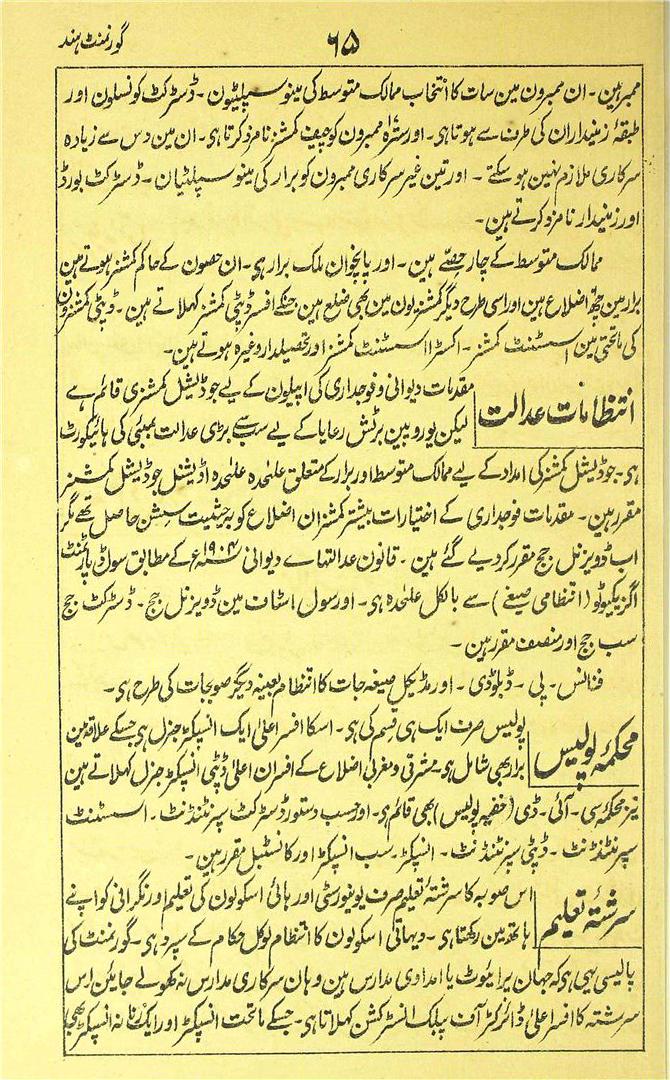 گورنمنٹ ہند
۶۵
ممبر ہین ۔ ان ممبرون مین سات کا انتخاب ممالک متوسط کی مینوسپلیٹیون ۔ ڈسٹرکٹ کونسلون اور
طبقۂ زمینداران کی طرف سے ہوتا ہی ۔ اور سترہ ممبرون کو چیف کمشنر نامزد کرتا ہی ۔ ان مین دس سے زیادہ
سرکاری ملازم نہین ہو سکتے ۔ اور تین غیر سرکاری ممبرون کو برار کی مینوسپلٹیان ۔ ڈسٹرکٹ بورڈ
اور زمیندار نامزد کرتے ہین ۔
ممالک متوسط کے چار حصّے ہین ۔ اور پانچوان ملک برار ہی ۔ ان حصون کے حاکم کمشنر ہوتے ہین
برار مین چھ اضلاع ہین اور اسی طرح دیگر کمشنریون مین بھی ضلع ہین جنکے افسر ڈپٹی کمشنر کہلاتے ہین ۔ ڈپٹی کمشنرون
کی ماتحتی مین اسسٹنٹ کمشنر ۔ اکسٹرا اسسٹنٹ کمشنر اور تحصیلدار وغیرہ ہوتے ہین ۔
انتظامات عدالت
مقدمات دیوانی و فوجداری کی اپیلون کے لیے جوڈیشل کمشنری قائم ہے
لیکن یوروپین برٹش رعایا کے لیے سب سے بڑی عدالت بمبئی کی ہائیکورٹ
ہی ۔ جوڈیشل کمشنر کی امداد کے لیے ممالک متوسط اور برار کے متعلق علٰحدہ علٰحدہ اڈیشنل جوڈیشل کمشنر
مقرر ہین ۔ مقدمات فوجداری کے اختیارات بیشتر کمشنران اضلاع کو بحیثیت سشن حاصل تھے مگر
اب ڈویزنل جج مقرر کر دیے گئے ہین ۔ قانون عدالتہاے دیوانی ۱۹۰۴ء کے مطابق سول ڈپارٹمنٹ
اگزیکیوٹو (انتظامی صیغے) سے بالکل علٰحدہ ہی ۔ اور سول اسٹاف مین ڈویزنل جج ۔ ڈسٹرکٹ جج
سب جج اور منصف مقرر ہین ۔
فنانس ۔ پی ۔ ڈبلو ڈی ۔ اور مڈیکل صیغہ جات کا انتظام بعینہ دیگر صوبجات کی طرح ہی ۔
محکمۂ پولیس
پولیس صرف ایک ہی قسم کی ہی ۔ اسکا افسر اعلیٰ ایک انسپکٹر جنرل ہی جسکے علاقہ مین
برار بھی شامل ہی ۔ مشرقی و مغربی اضلاع کے افسران اعلیٰ ڈپٹی انسپکٹر جنرل کہلاتے ہین
نیز محکمہ سی ۔ آئی ۔ ڈی (خفیہ پولیس) بھی قائم ہی ۔ اور حسب دستور ڈسٹرکٹ سپرنٹنڈنٹ ۔ اسسٹنٹ
سپرنٹنڈنٹ ۔ ڈپٹی سپرنٹنڈنٹ ۔ انسپکٹر ۔ سب انسپکٹر اور کانسٹبل مقرر ہین ۔
سرشتۂ تعلیم
اس صوبہ کا سرشتۂ تعلیم صرف یونیورسٹی اور ہائی اسکولون کی تعلیم اور نگرانی کو اپنے
ہاتھ مین رکھتا ہی ۔ دیہاتی اسکولون کا انتظام لوکل حکام کے سپرد ہی ۔ گورنمنٹ کی
پالیسی یہی ہی کہ جہان پرائیوٹ یا امدادی مدارس ہین وہان سرکاری مدارس نہ کھولے جائین اس
سرشتہ کا افسر اعلیٰ ڈائرکٹر آف پبلک انسٹرکشن کہلاتا ہی ۔ جسکے ماتحت انسپکٹر اور ایک زنانہ انسپکٹر بھی